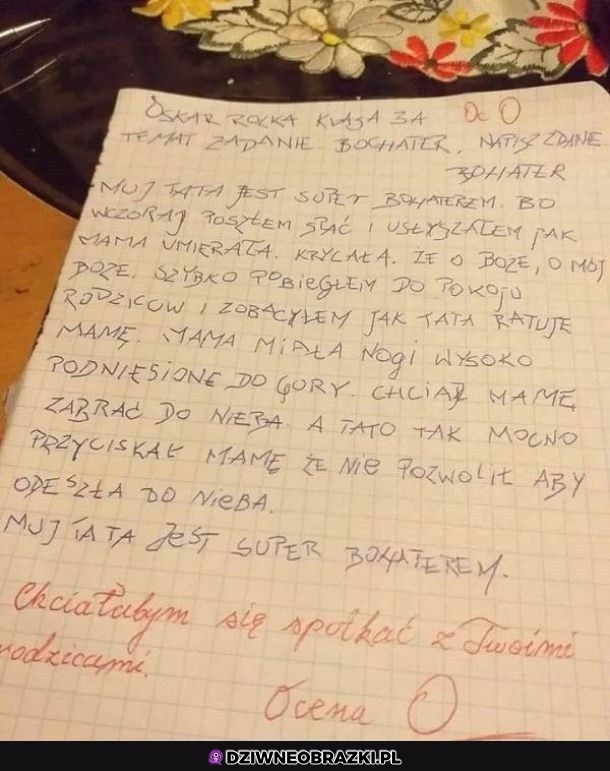 OSKAR ROLKA KLASA 3A Oc O
TEMAT ZADANIE BOCHATER. NAPISZ ZDANE
BOHATER
MUJ TATA JEST SUPER BOHATEREM. BO
WCZORAJ POSZŁEM SPAĆ I USŁYSZAŁEM JAK
MAMA UMIERAŁA. KRYCAŁA. ŻE O BOŻE, O MÓJ
BOŻE. SZYBKO POBIEGŁEM DO POKOJU
RODZICOW I ZOBACYŁEM JAK TATA RATUJE
MAMĘ. MAMA MIAŁA NOGI WYSOKO
PODNIESIONE DO GÓRY. CHCIAŁ MAMĘ
ZABRAĆ DO NIEBA. A TATO TAK MOCNO
PRZYCISKAŁ MAMĘ ŻE NIE POZWOLIŁ ABY
ODESZŁA DO NIEBA.
MUJ TATA JEST SUPER BOHATEREM.
Chciałabym się spotkać z Twoimi
rodzicami.
Ocena O
DZIWNEOBRAZKI.PL